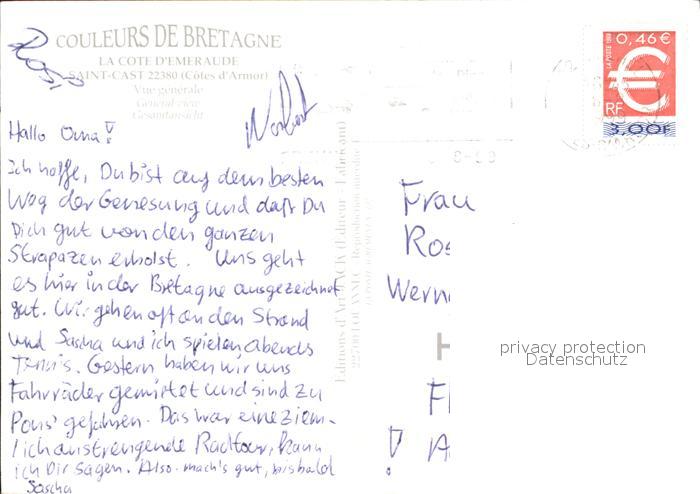 COULEURS DE BRETAGNE
LA COTE D'EMERAUDE
SAINT-CAST 22380 (Côtes d'Armor)
Vue générale
General view
Gesamtansicht
Rosi
Norbert
Hallo Oma!
Ich hoffe, Du bist auf dem besten
Weg der Genesung und daß Du
Dich gut von den ganzen
Strapazen erholst. Uns geht
es hier in der Bretagne ausgezeichnet
gut. Wir gehen oft an den Strand
und Sascha und ich spielen abends
Tennis. Gestern haben wir uns
Fahrräder gemietet und sind zu
Pons' gefahren. Das war eine ziem-
lich anstrengende Radtour, kann
ich Dir sagen. Also mach's gut, bis bald
Sascha
Editions d'Art JACK (Editeur - Fabricant)
LA POSTE 1999
0,46 €
€
RF
3,00F
Frau
Ros
Wern
H
privacy protection
Datenschutz
Fl
! A